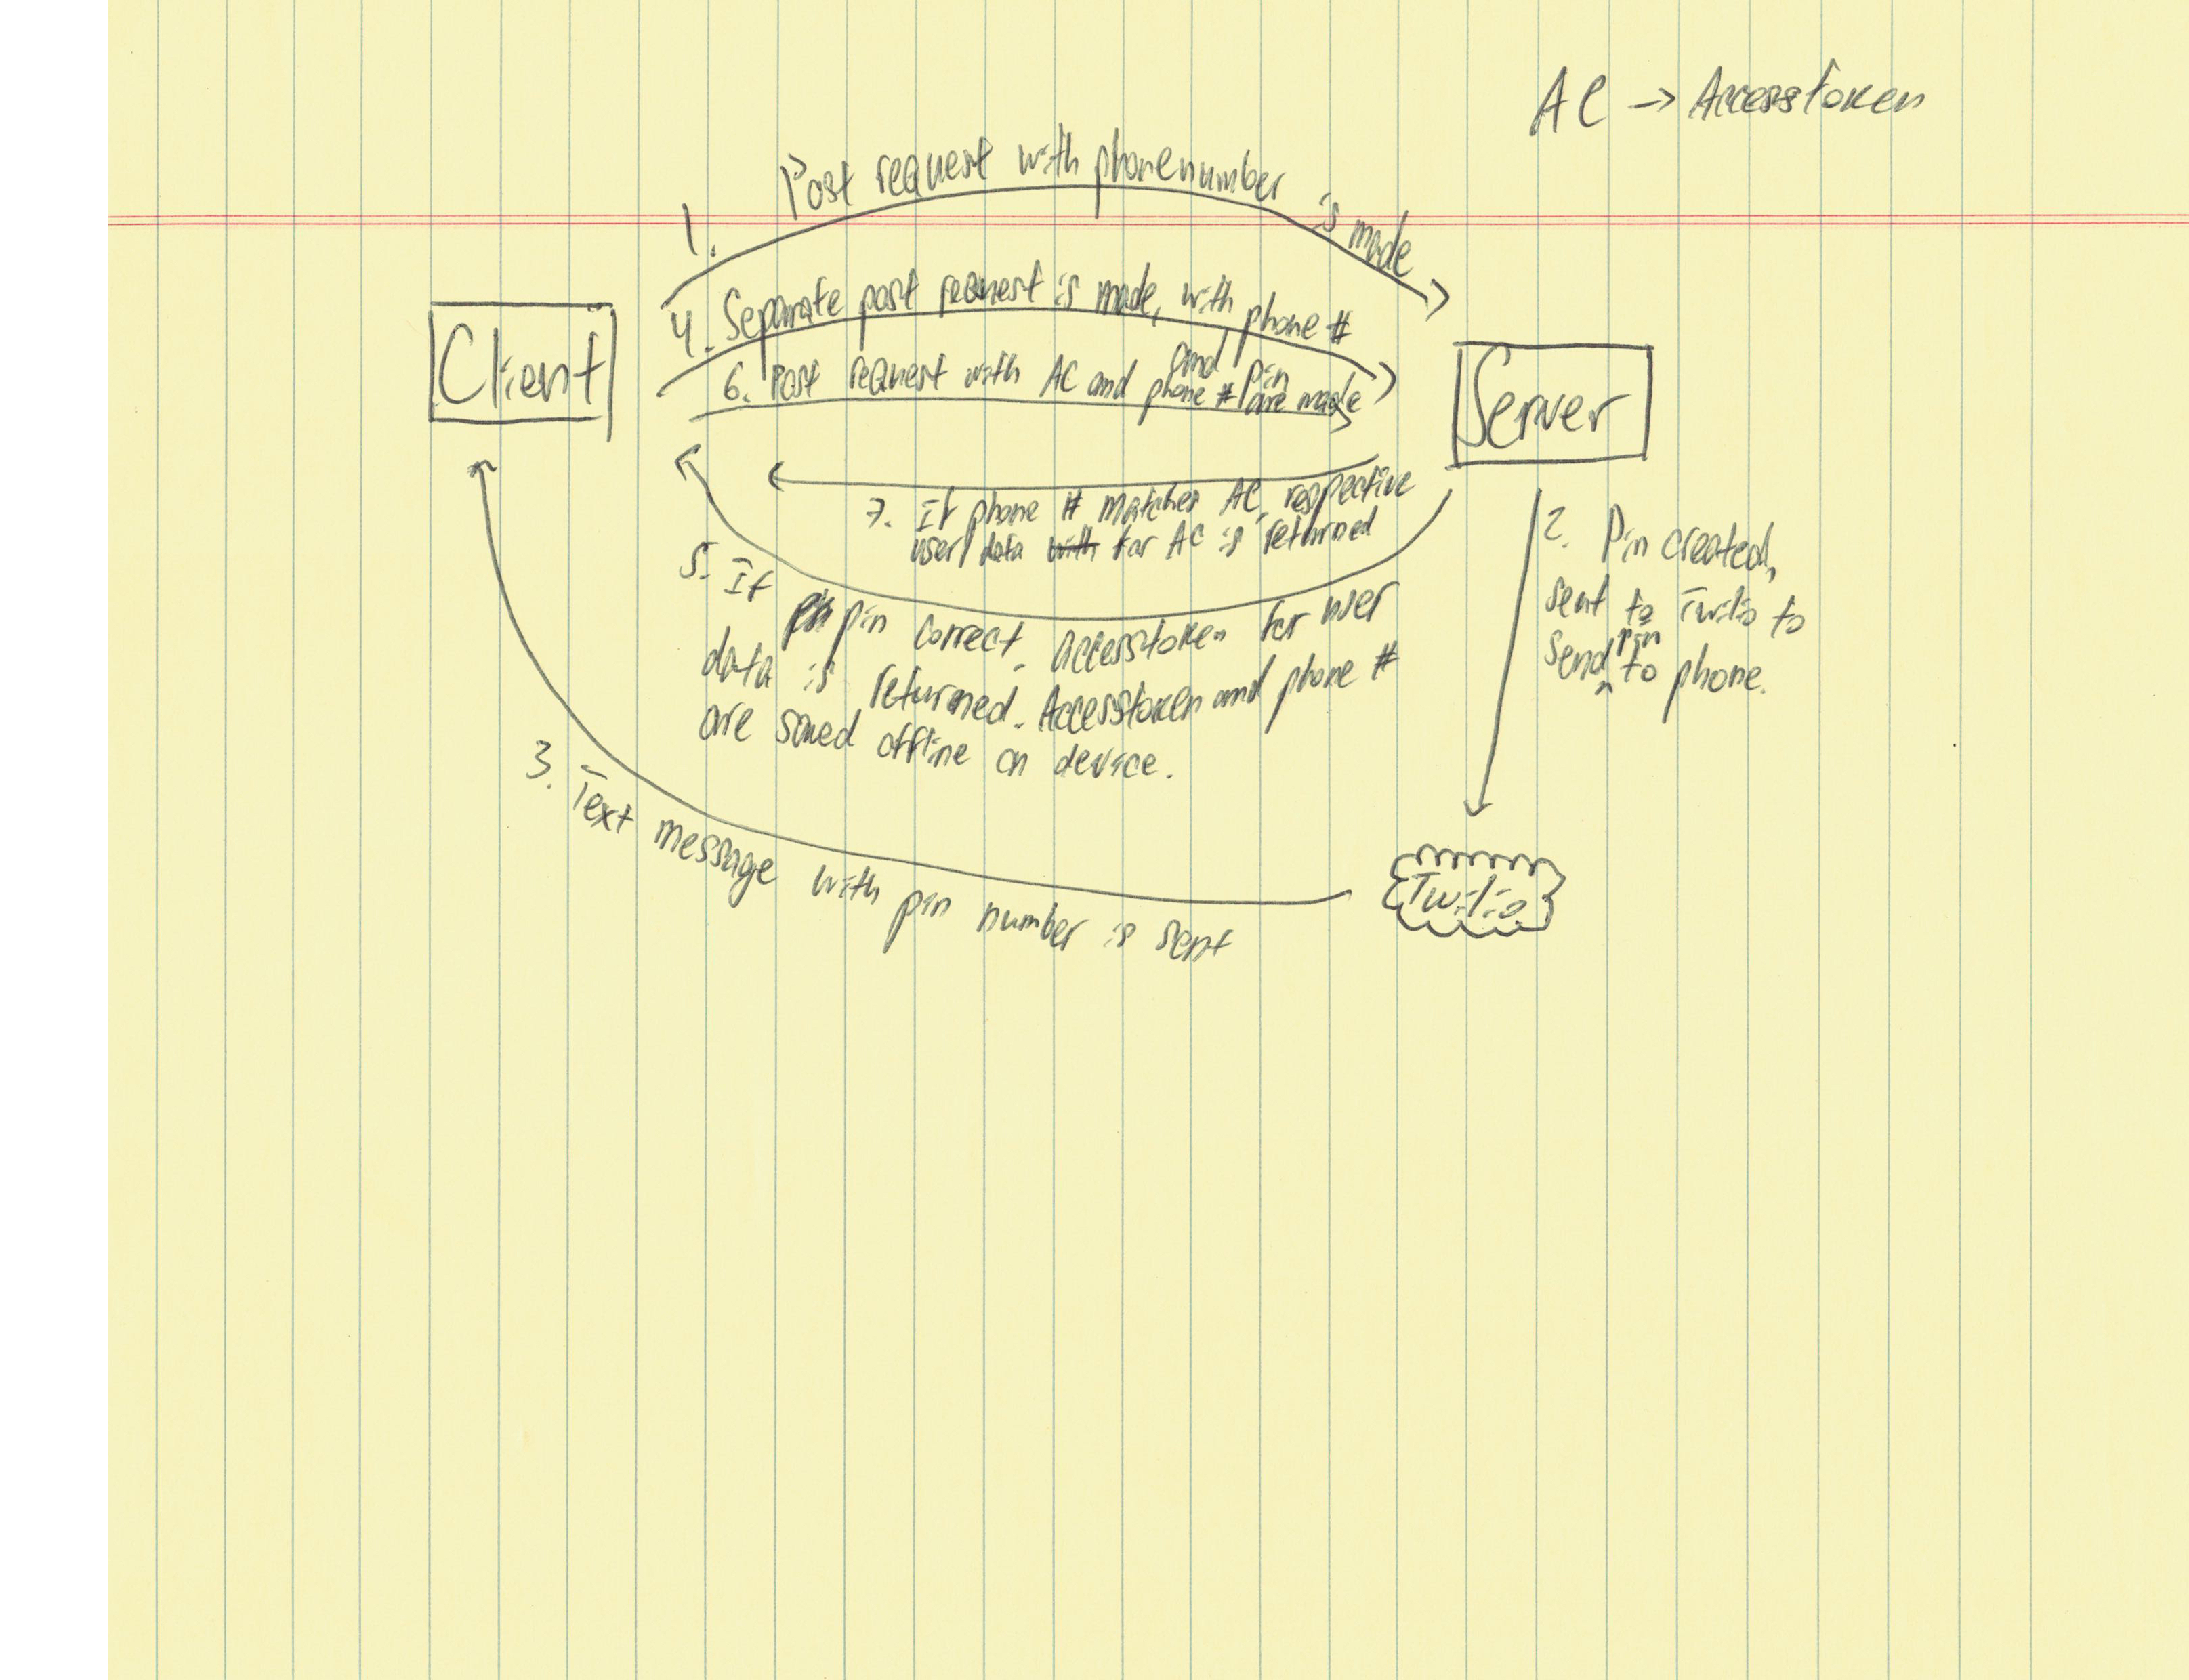 AC → Accesstoken
1. Post request with phonenumber is made
4. Separate post request is made, with phone #
and pin
6. Post request with AC and phone # are made
Client
Server
7. If phone # matches AC, respective
user data with for AC is returned
5. If pin correct, accesstoken for user
data is returned. Accesstoken and phone #
are saved offline on device.
2. Pin created,
sent to Twilio to
send pin to phone.
3. Text message with pin number is sent
Twilio